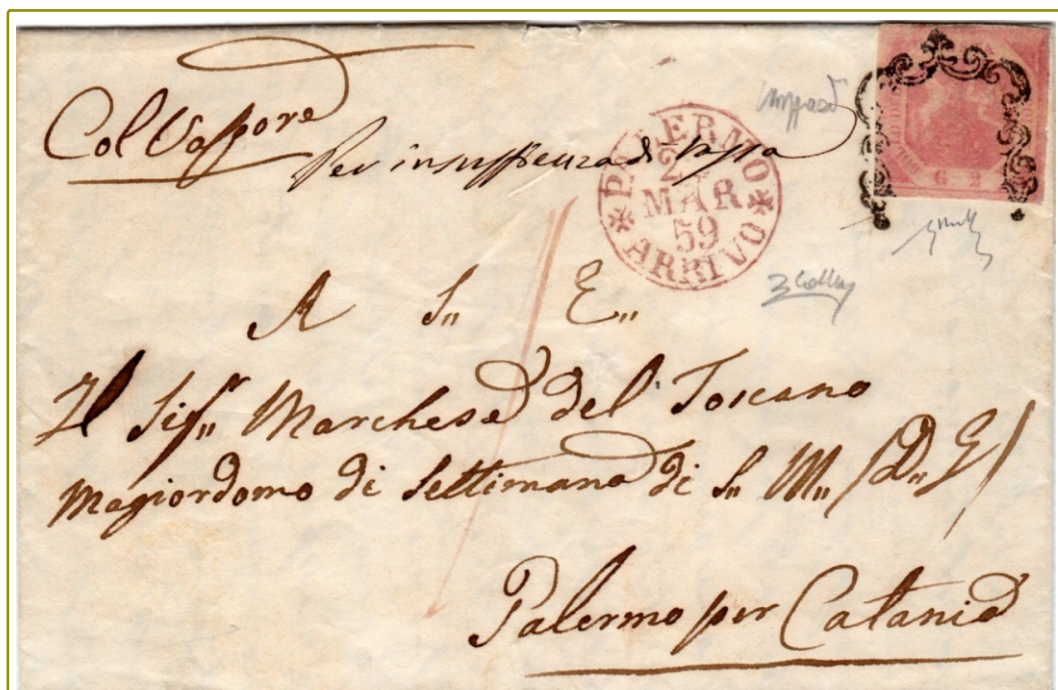 Col Vapore
Per insufficienza di tassa
PALERMO
24
MAR
59
ARRIVO
G. 2
A S.. E..
Il Sig.r Marchese del Toscano
Magiordomo di Settimana di S.. M.. (D.. G.)
Palermo per Catania